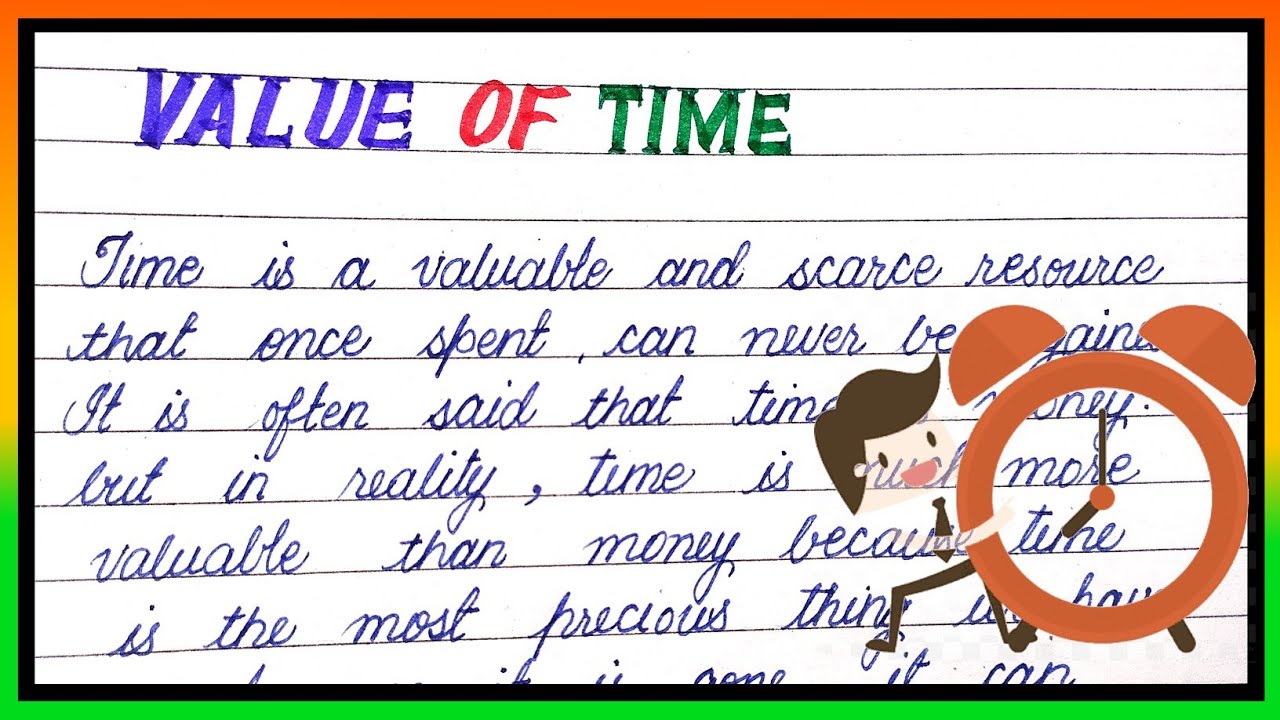 VALUE OF TIME
Time is a valuable and scarce resource
that once spent, can never be
It is often said that time money.
but in reality, time is much more
valuable than money because time
is the most precious thing we have
it is gone, it can